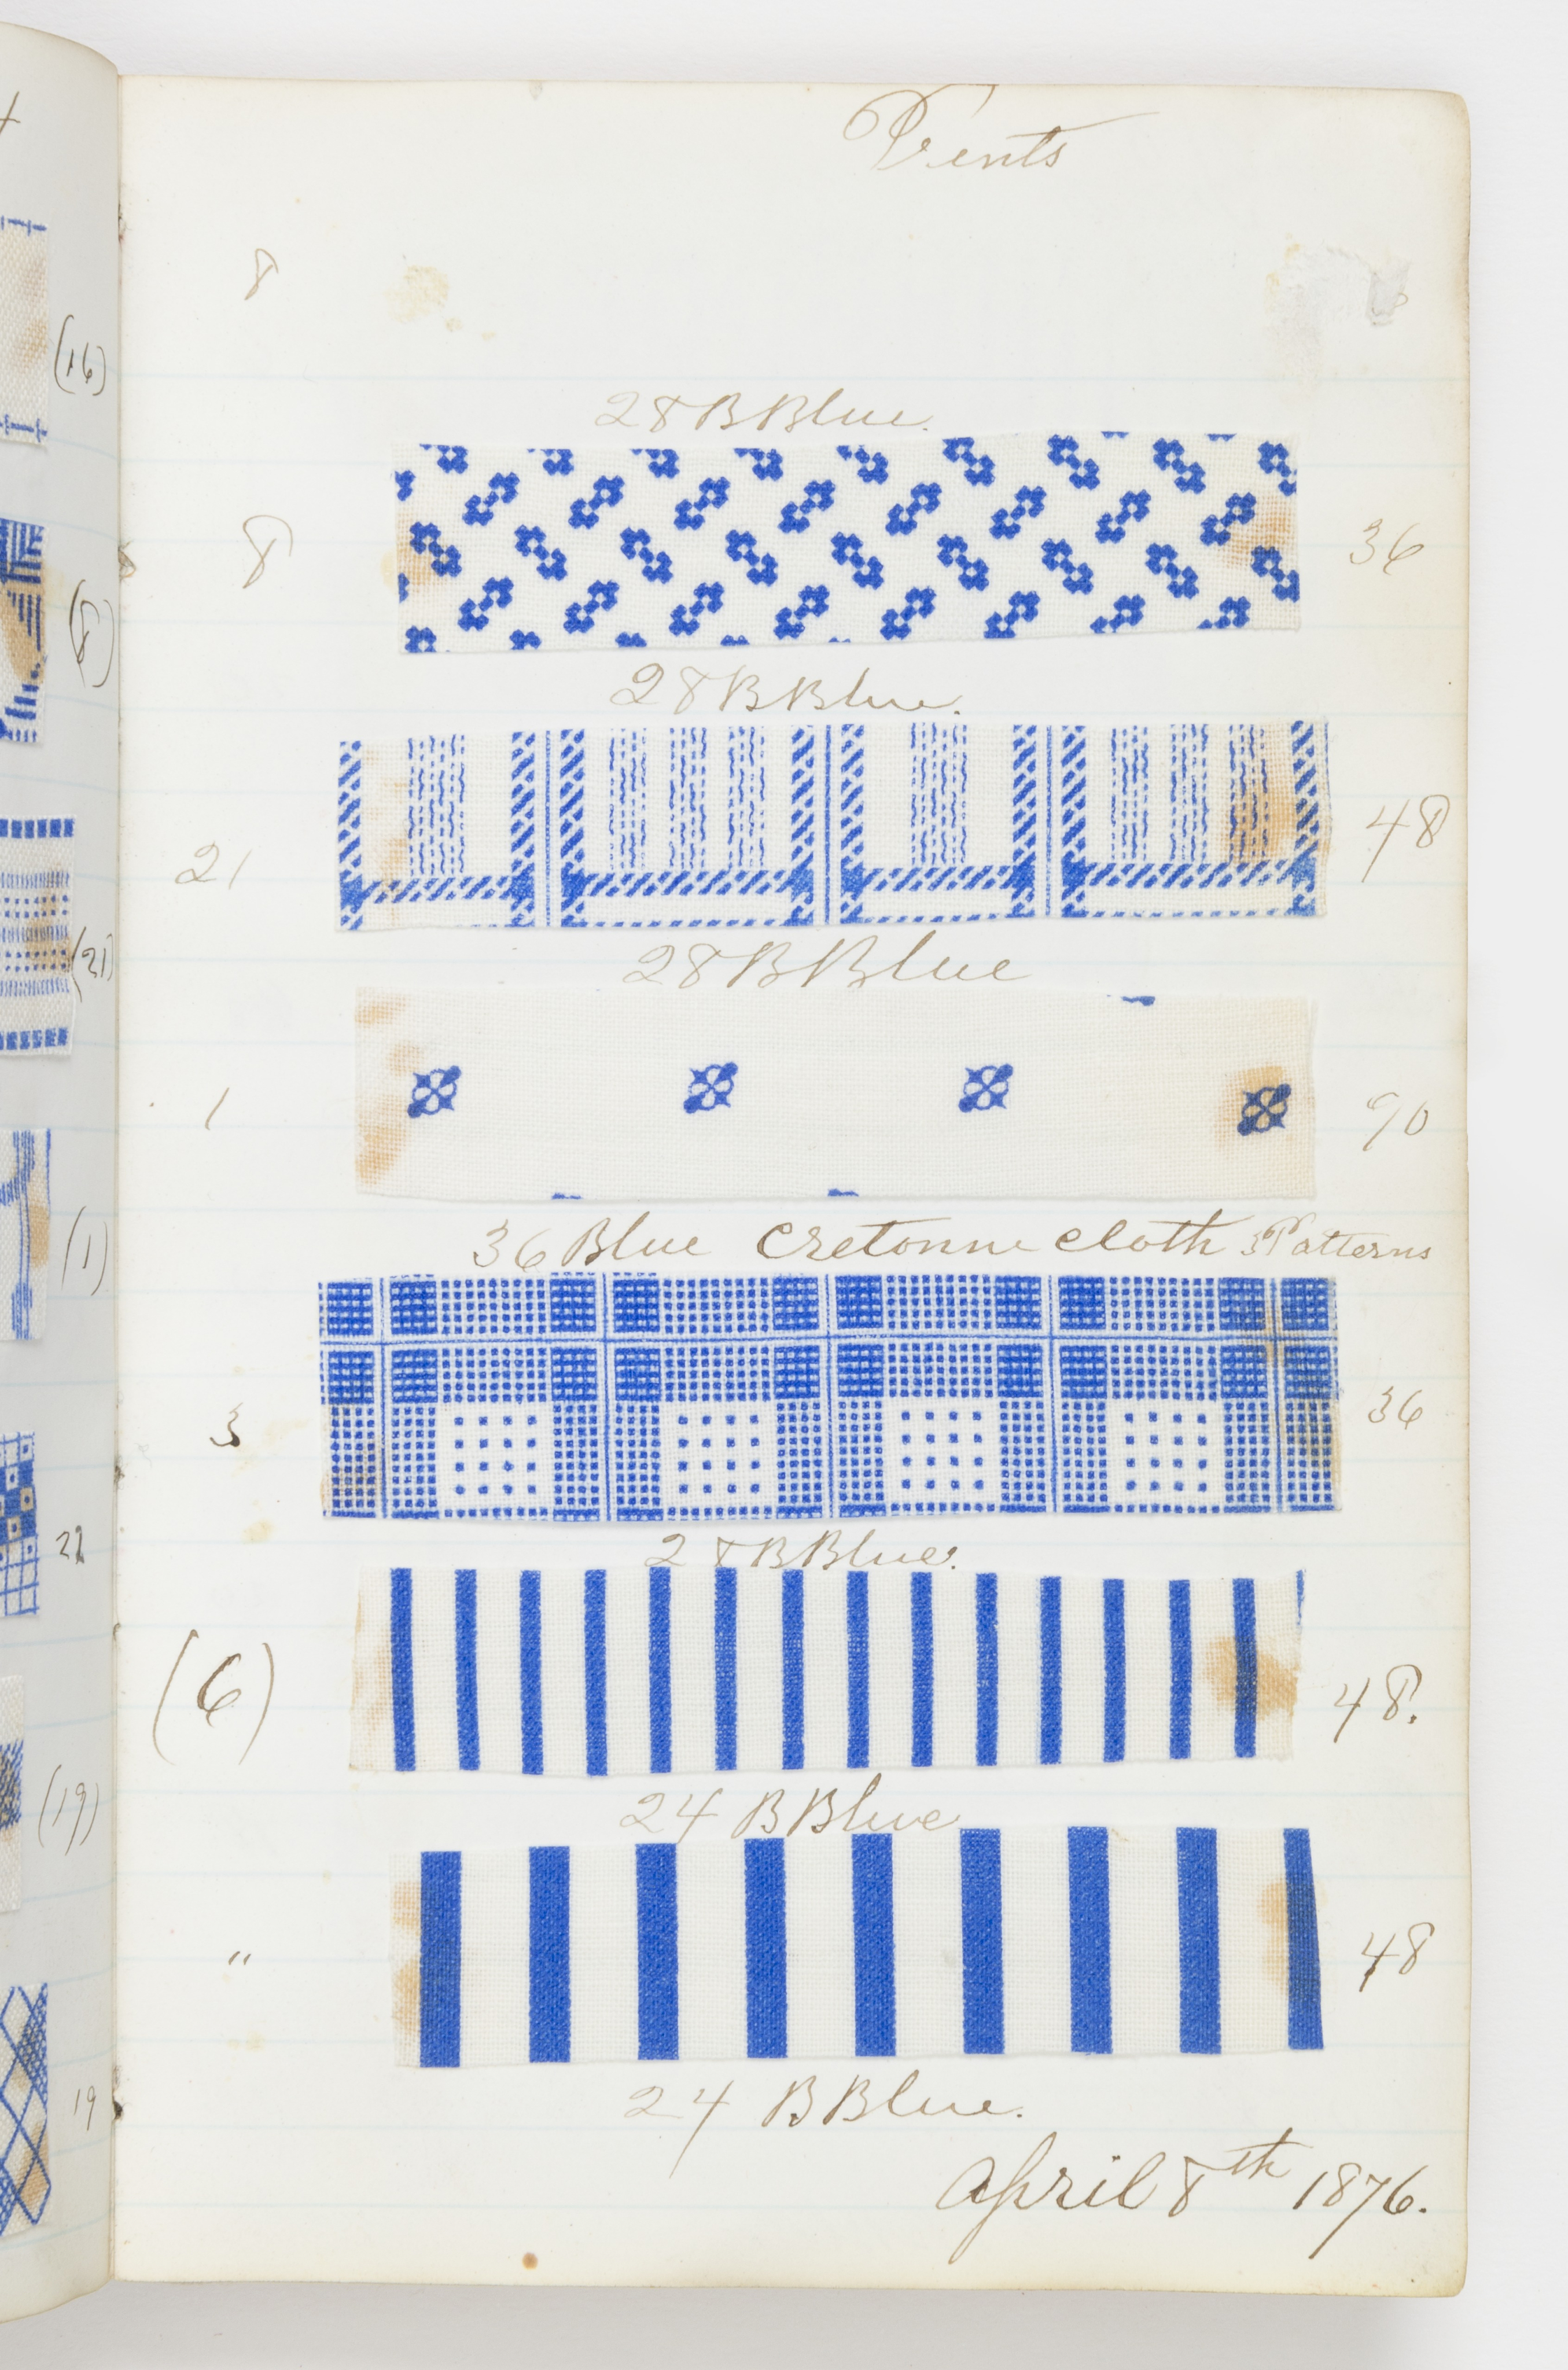 (16)
(8)
(21)
(1)
22
(19)
19
Vents
8
28 B Blue.
8 36
28 B Blue.
21 48
28 B Blue
1 90
36 Blue Cretonne cloth 3 Patterns
3 36
28 B Blue.
(6) 48.
24 B Blue
" 48
24 B Blue.
April 8th 1876.